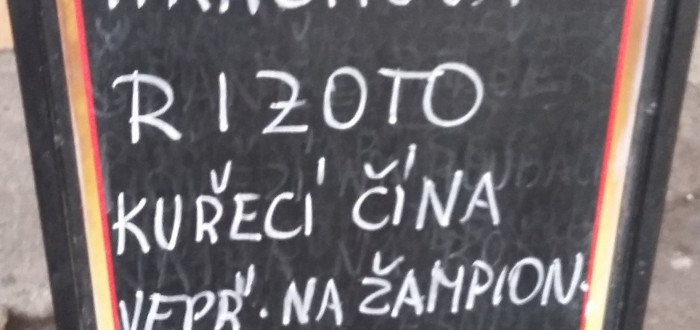 RIZOTO
KUŘECÍ ČÍNA
VEPŘ. NA ŽAMPION.